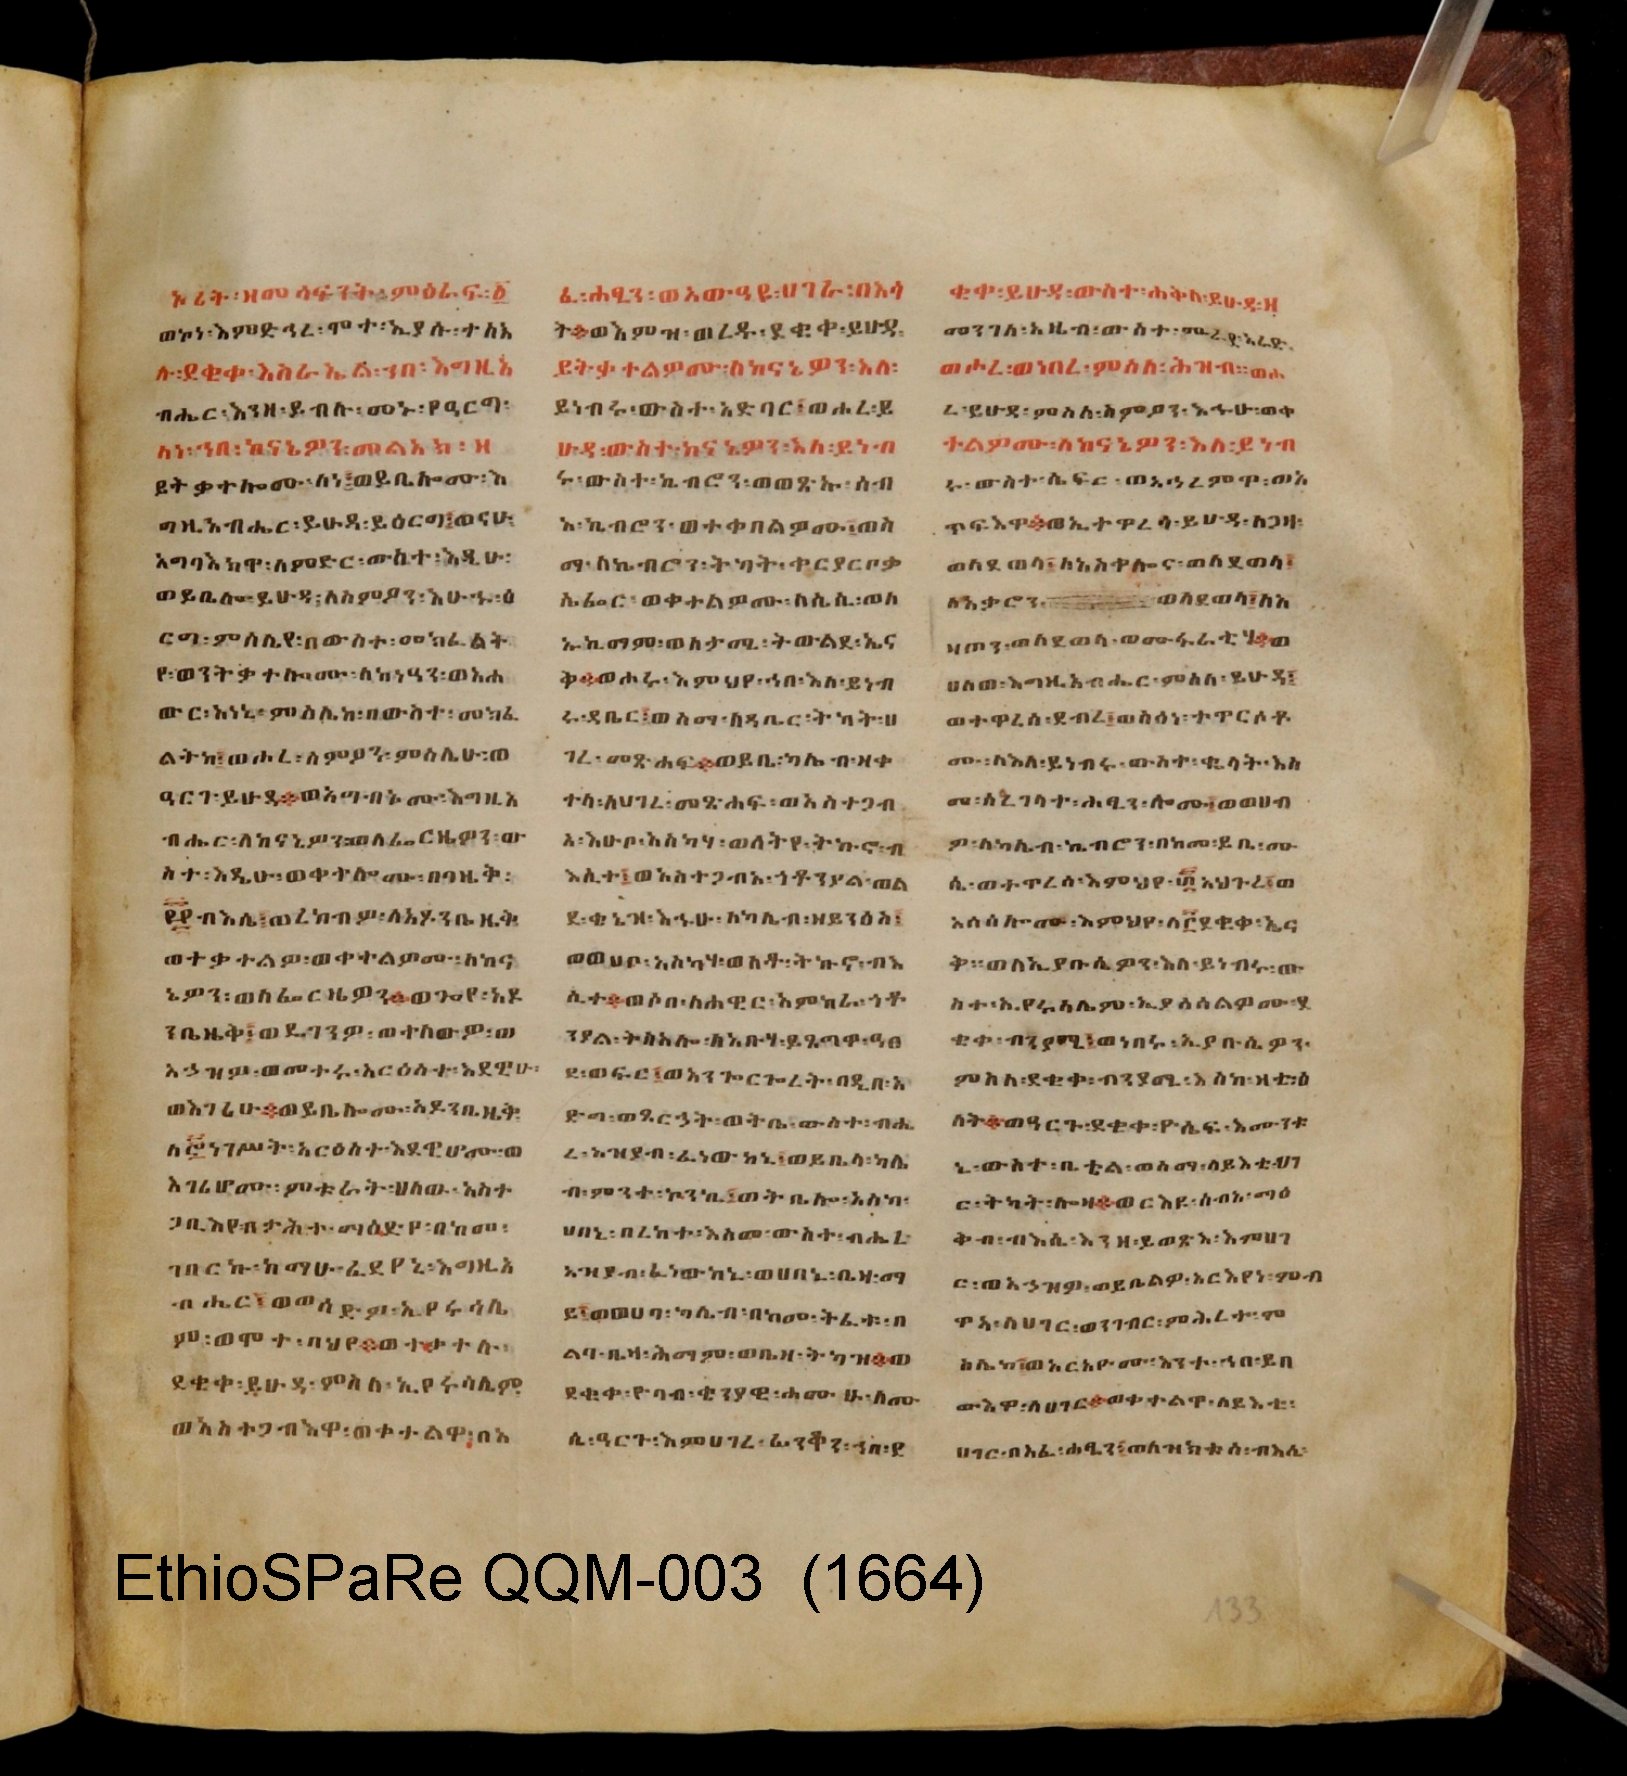 ኦሪት፡ ዘመሳፍንት፡ ምዕራፍ፡ ፩
ወኮነ፡ እምድኅረ፡ ሞተ፡ ኢያሱ፡ ተስእ
ሉ፡ ደቂቀ፡ እስራኤል፡ ኀበ፡ እግዚአ
ብሔር፡ እንዘ፡ ይብሉ፡ መኑ፡ የዓርግ፡
ለነ፡ ኀበ፡ ከናኔዎን፡ መልአክ፡ ዘ
ይትቃተሎሙ፡ ለነ፤ ወይቤሎሙ፡ እ
ግዚአብሔር፡ ይሁዳ፡ ይዕርግ፤ ወናሁ፡
አግባእክዋ፡ ለምድር፡ ውስተ፡ እዲሁ፡
ወይቤሎ፡ ይሁዳ፡ ለስምዖን፡ እሁኁ፡ ዕ
ርግ፡ ምስሌየ፡ በውስተ፡ መክፈልት
የ፡ ወንትቃተሎሙ፡ ለከነዓን፡ ወአሐ
ውር፡ አነኒ፡ ምስሌከ፡ በውስተ፡ መክፈ
ልትከ፤ ወሖረ፡ ስምዖን፡ ምስሌሁ፡ ወ
ዓርገ፡ ይሁዳ። ወአግብኦሙ፡ እግዚአ
ብሔር፡ ለከናኔዎን፡ ወለፌርዜዎን፡ ው
ስተ፡ እዲሁ፡ ወቀተሎሙ፡ በባዚቅ፡
፼ብእሴ፤ ወረከብዎ፡ ለአዶንቤዜቅ
ወተቃተልዎ፡ ወቀተልምሙ፡ ለከና
ኔዎን፡ ወለፌርዜዎን። ወጐየ፡ አዶ
ንቤዜቅ፤ ወዴገንዎ፡ ወተለውዎ፡ ወ
አኃዝዎ፡ ወመተሩ፡ አርዕስተ፡ እደዊሁ፡
ወእገሪሁ። ወይቤሎሙ፡ አዶንቤዚቅ
ለ፸ነገሥት፡ አርዕስተ፡ እደዊሆሙ፡ ወ
እገሪሆሙ፡ ምቱራት፡ ሀለው፡ አስተ
ጋቢእየ፡ በታሕተ፡ ማዕድየ፡ በከመ፡
ገበርኩ፡ ከማሁ፡ ፈደየኒ፡ እግዚአ
ብሔር፤ ወወሰድዎ፡ ኢየሩሳሌ
ም፡ ወሞተ፡ በህየ። ወተቃተሉ፡
ደቂቀ፡ ይሁዳ፡ ምስለ፡ ኢየሩሳሌም
ወአስተጋብእዋ፡ ወቀተልዋ፤ በአ
ፈ፡ ሐፂን፡ ወአውዓዩ፡ ሀገራ፡ በእሳ
ት። ወእምዝ፡ ወረዱ፡ ደቂቀ፡ ይሁዳ
ይትቃተልዎሙ፡ ለከናኔዎን፡ እለ፡
ይነብሩ፡ ውስተ፡ አድባር፤ ወሖረ፡ ይ
ሁዳ፡ ውስተ፡ ከናኔዎን፡ እለ፡ ይነብ
ሩ፡ ውስተ፡ ኬብሮን፡ ወወጽኡ፡ ሰብ
አ፡ ኬብሮን፡ ወተቀበልዎሙ፤ ወስ
ማ፡ ለኬብሮን፡ ትካት፡ ቀርያርቦቃ
ሴፌር፡ ወቀተልዎሙ፡ ለሴሲ፡ ወለ
አኪማም፡ ወለታሚ፡ ትውልደ፡ ኤና
ቅ። ወሖሩ፡ እምህየ፡ ኀበ፡ እለ፡ ይነብ
ሩ፡ ዳቤር፤ ወስማ፡ ለዳቤር፡ ትካት፡ ሀ
ገረ፡ መጽሐፍ። ወይቤ፡ ካሌብ፡ ዘቀ
ተላ፡ ለሀገረ፡ መጽሐፍ፡ ወአስተጋብ
አ፡ እሁቦ፡ አስካሃ፡ ወለትየ፡ ትኩኖ፡ ብ
እሲተ፤ ወአስተጋብአ፡ ጎቶንያል፡ ወል
ደ፡ ቄኔዝ፡ እኁሁ፡ ለካሌብ፡ ዘይንዕስ፤
ወወሀቦ፡ አስካሃ፡ ወለቶ፡ ትኩኖ፡ ብእ
ሲተ። ወሶበ፡ ለሐዊር፡ አምከራ፡ ጎቶ
ንያል፡ ትስአሎ፡ ለአቡሃ፡ ይጌጣዋ፡ ዓፀ
ደ፡ ወፍር፤ ወአንጐርጐረት፡ በዲበ፡ አ
ድግ፡ ወጸርኃት፡ ወትቤ፡ ውስተ፡ ብሔ
ረ፡ አዜብ፡ ፈነውከኒ፤ ወይቤላ፡ ካሌ
ብ፡ ምንተ፡ ኮንኪ፤ ወትቤሎ፡ አስካ፡
ሀበኒ፡ በረከተ፡ እስመ፡ ውስተ፡ ብሔረ
አዜብ፡ ፈነውከኒ፡ ወሀበኒ፡ ቤዛ፡ ማ
ይ፤ ወወሀባ፡ ካሌብ፡ በከመ፡ ትፈቱ፡ በ
ልባ፡ ቤዛ፡ ሕማም፡ ወቤዛ፡ ትካዝ። ወ
ደቂቀ፡ ዮባብ፡ ቄንያዊ፡ ሐሙሁ፡ ለሙ
ሴ፡ ዓርጉ፡ እምሀገረ፡ ፊንቆን፡ ኀበ፡ ደ
ቂቀ፡ ይሁዳ፡ ውስተ፡ ሐቅለ፡ ይሁዳ፡ ዘ
መንገለ፡ አዜብ፡ ውስተ፡ ሙረደ፡ አሬድ
ወሖረ፡ ወነበረ፡ ምስለ፡ ሕዝብ። ወሖ
ረ፡ ይሁዳ፡ ምስለ፡ ስምዖን፡ እኁሁ፡ ወቀ
ተልምሙ፡ ለከናኔዎን፡ እለ፡ ይነብ
ሩ፡ ውስተ፡ ሴፍር፡ ወአኅረምዋ፡ ወአ
ጥፍእዋ። ወኢተዋረሳ፡ ይሁዳ፡ ለጋዛ፡
ወለደወላ፤ ለአስቀሎና፡ ወለደወላ፤
ለአቃሮን፡ ወለደወላ፤ ለአ
ዛጦን፡ ወለደወላ፡ ወሙፋሪቲሃ። ወ
ሀለወ፡ እግዚአብሔር፡ ምስለ፡ ይሁዳ፤
ወተዋረሰ፡ ደብረ፤ ወስዕነ፡ ተዋርሶቶ
ሙ፡ ለእለ፡ ይነብሩ፡ ውስተ፡ ቈላት፡ እስ
መ፡ ለረገላተ፡ ሐፂን፡ ሎሙ፤ ወወሀብ
ዎ፡ ለካሌብ፡ ኬብሮን፡ በከመ፡ ይቤ፡ ሙ
ሴ፡ ወተዋረሰ፡ እምህየ፡ ፫አህጉረ፤ ወ
አሰሰሎሙ፡ እምህየ፡ ለ፫ደቂቀ፡ ኤና
ቅ። ወለኢያቡሴዎን፡ እለ፡ ይነብሩ፡ ው
ስተ፡ ኢየሩሳሌም፡ ኢያሰሰልዎሙ፡ ደ
ቂቀ፡ ብንያሚ፤ ወነበሩ፡ ኢያቡሴዎን፡
ምስለ፡ ደቂቀ፡ ብንያሚ፡ እስከ፡ ዛቲ፡ ዕ
ለት። ወዓርጉ፡ ደቂቀ፡ ዮሴፍ፡ እሙንቱ
ኒ፡ ውስተ፡ ቤቴል፡ ወስማ፡ ለይእቲ፡ ሀገ
ር፡ ትካት፡ ሎዛ። ወርእዩ፡ ሰብአ፡ ማዕ
ቅብ፡ ብእሲ፡ እንዘ፡ ይወጽእ፡ እምሀገ
ር፡ ወአኃዝዎ፡ ወይቤልዎ፡ አርእየነ፡ ምብ
ዋአ፡ ለሀገር፡ ወንገብር፡ ምሕረተ፡ ም
ስሌከ፤ ወአርአዮሙ፡ እንተ፡ ኀበ፡ ይበ
ውእዋ፡ ለሀገር። ወቀተልዋ፡ ለይእቲ፡
ሀገር፡ በአፈ፡ ሐፂን፤ ወለዝክቱሰ፡ ብእሲ፡
EthioSPaRe QQM-003 (1664)
133